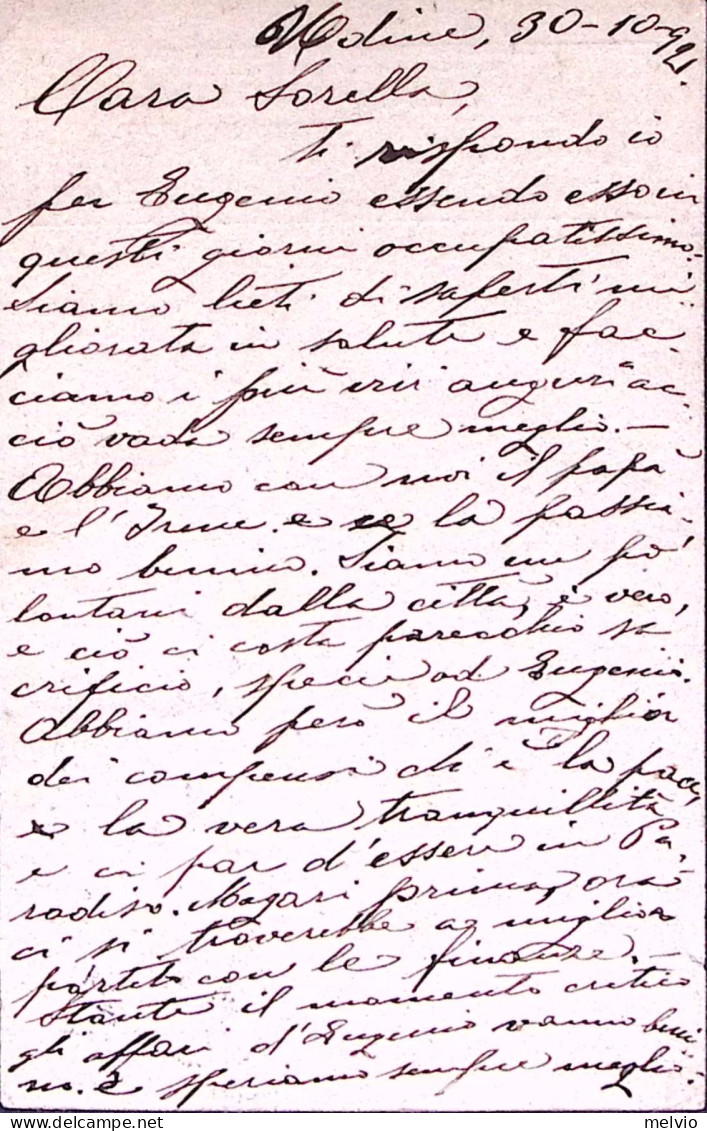 Udine, 30-10-921.
Cara Sorella,
ti rispondo io
per Eugenio essendo esso in
questi giorni occupatissimo.
Siamo lieti di saperti mi-
gliorata in salute e fac-
ciamo i più vivi auguri ac-
ciò vada sempre meglio. —
Abbiamo con noi il papà
e l'Irene e se la passia-
mo benino. Siamo un po'
lontani dalla città, è vero,
e ciò ci costa parecchio sa
crificio, specie ad Eugenio.
Abbiamo però il miglior
dei compensi ch'è la pace,
e la vera tranquillità
e ci par d'essere in Pa-
radiso. Magari prima, ora
ci si troverebbe a miglior
partito con le finanze. —
Stante il momento critico
gli affari d'Eugenio vanno beni
no. e speriamo sempre meglio.
melvio